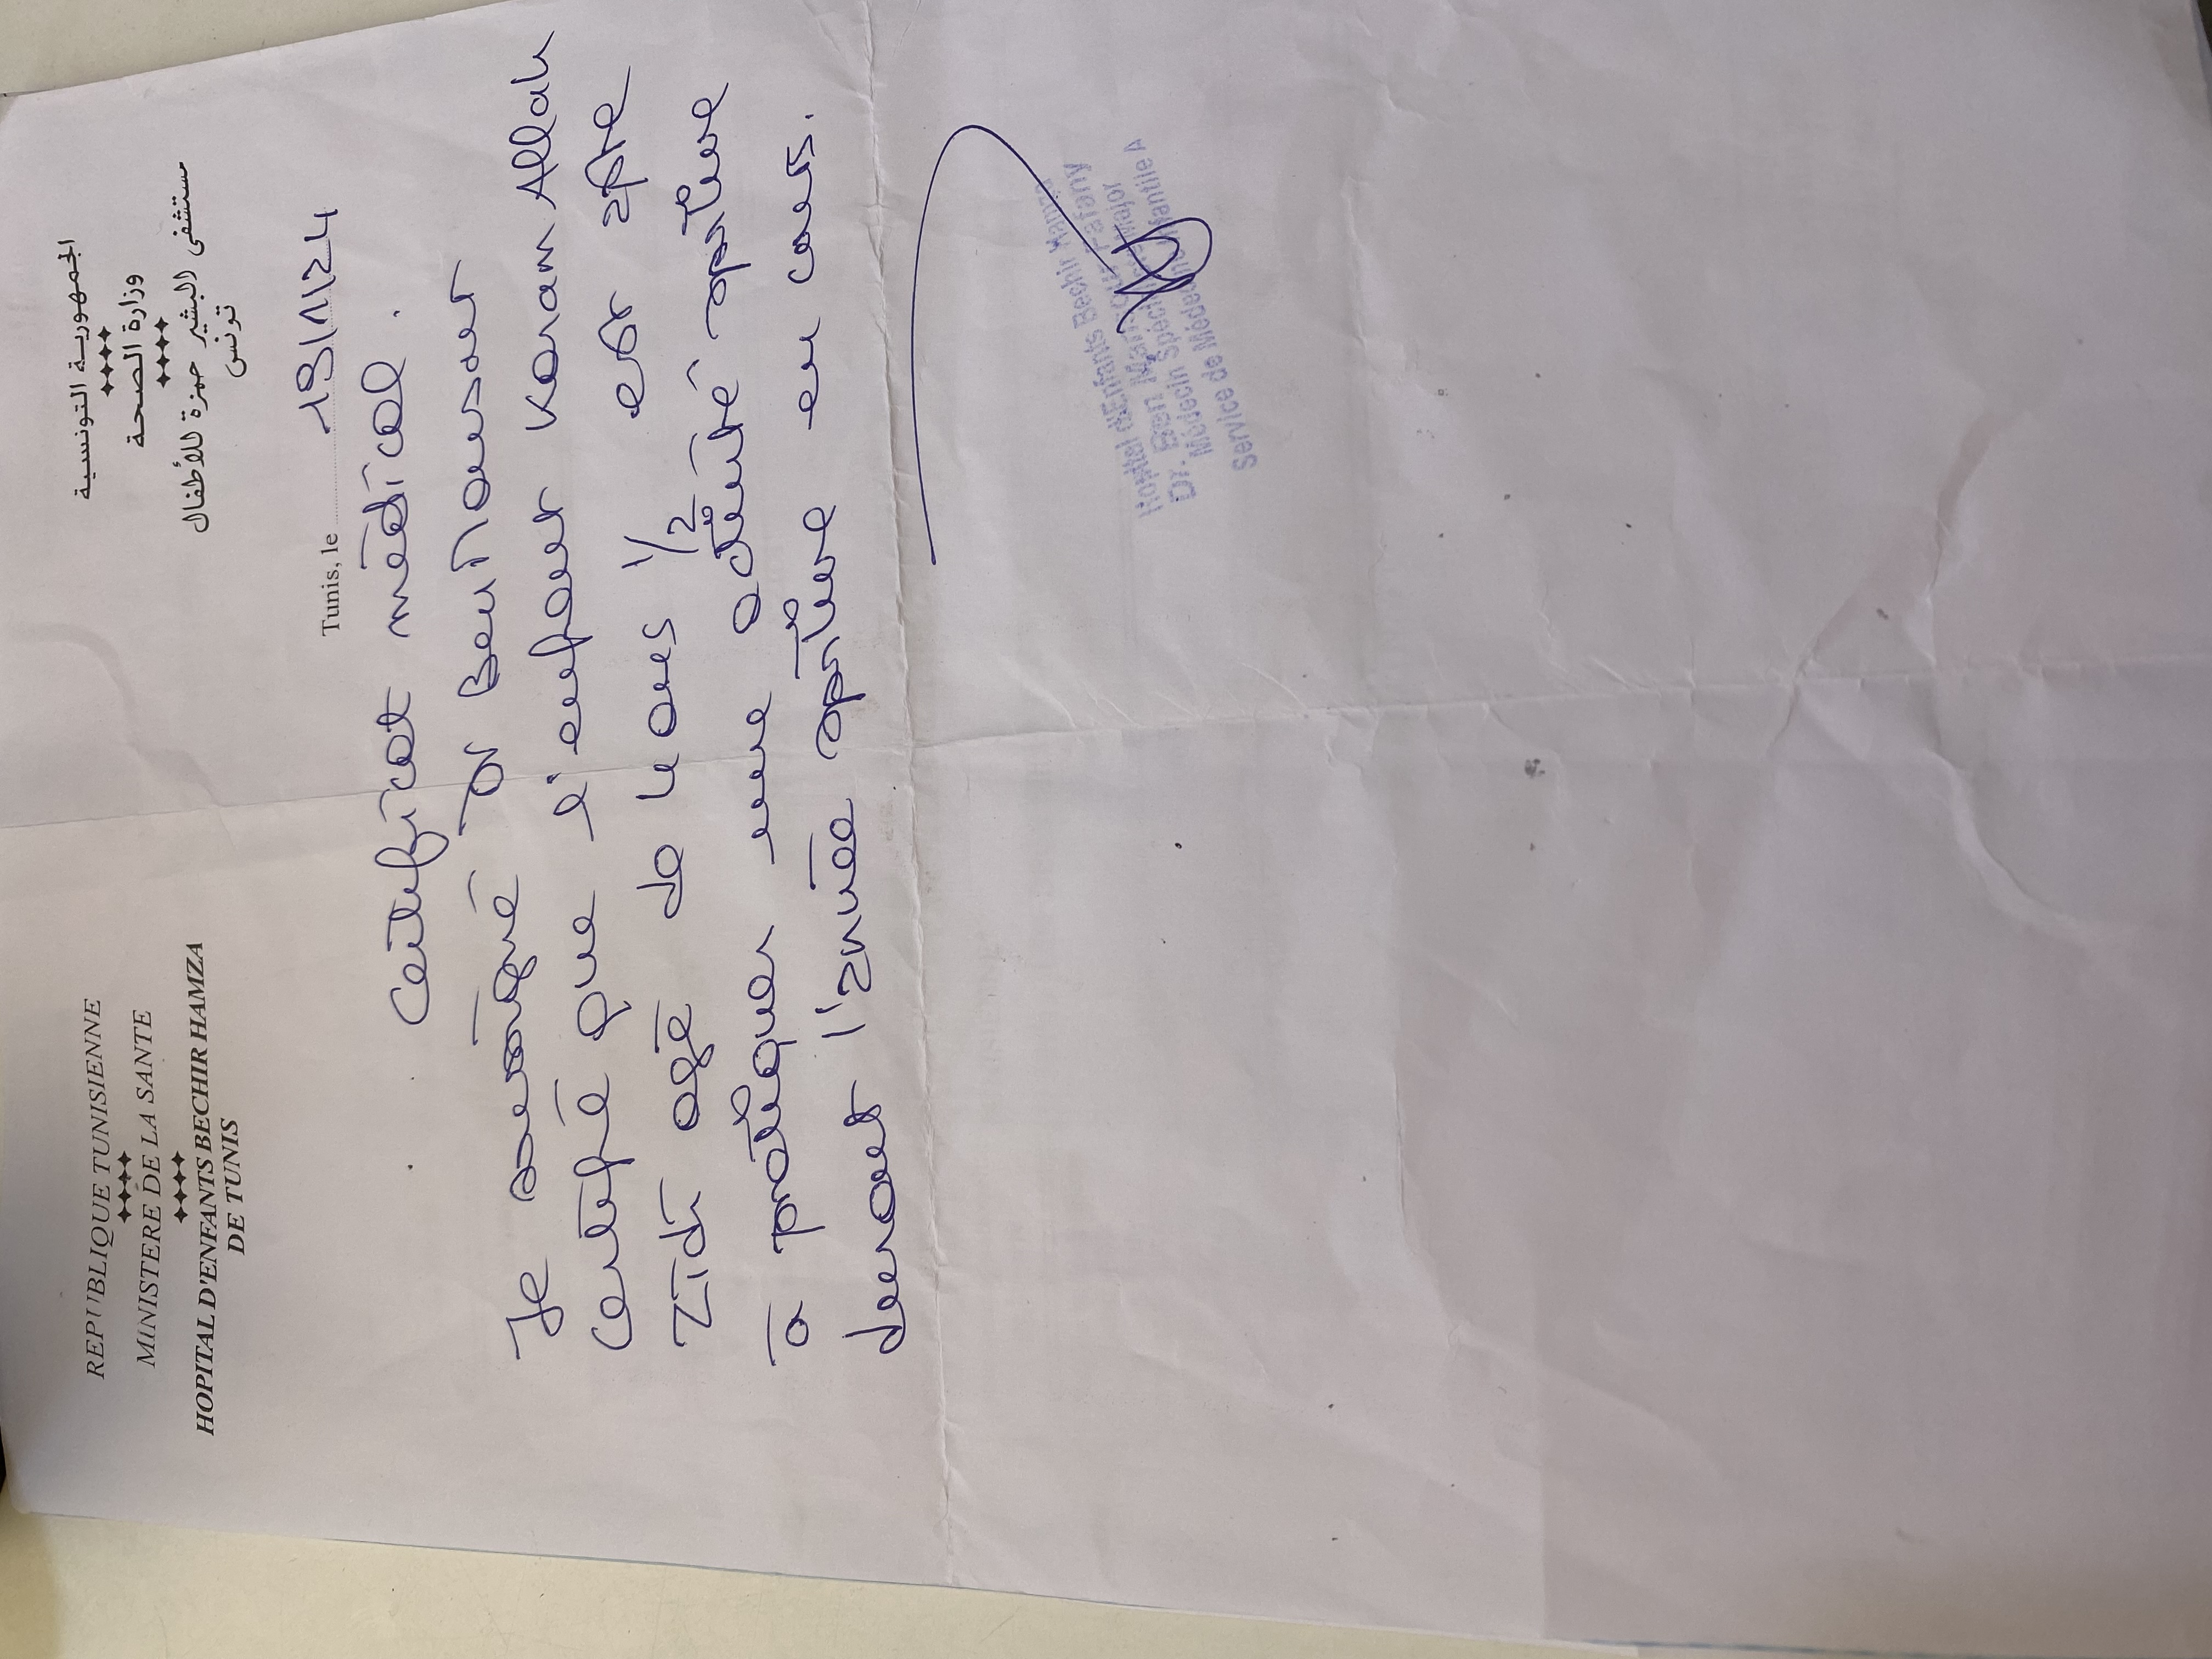 REPUBLIQUE TUNISIENNE
MINISTERE DE LA SANTE
HOPITAL D'ENFANTS BECHIR HAMZA
DE TUNIS
الجمهورية التونسية
وزارة الصحة
مستشفى البشير حمزة للأطفال
تونس
Tunis, le 19/11/24
Certificat médical.
Je soussigné Dr Ben Mansour
certifie que l'enfant Karam Allah
Zidi agé de 4 ans 1/2 est apte
à pratiquer une activité sportive
durant l'année sportive en cours.
Hopital d'Enfants Bechir Hamza
Dr. Ben Mansour
Médecin Spécialiste Major
Service de Médecine Infantile A